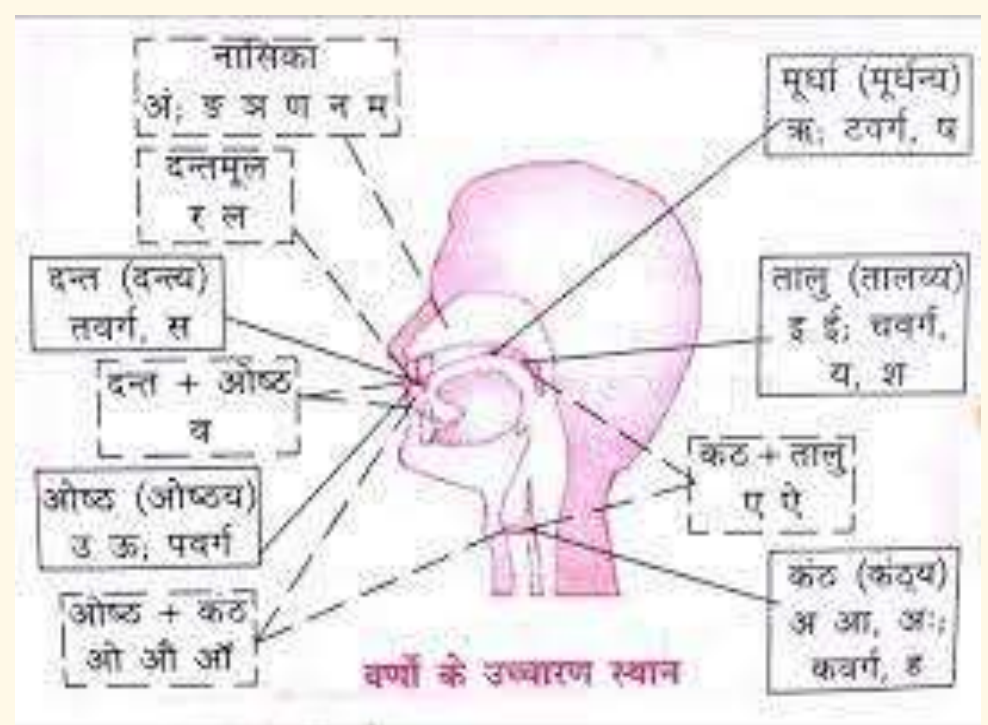 नासिका
अं; ङ ञ ण न म
दन्तमूल
र ल
दन्त (दन्त्य)
तवर्ग, स
दन्त + ओष्ठ
व
ओष्ठ (ओष्ठ्य)
उ ऊ; पवर्ग
ओष्ठ + कंठ
ओ औ ऑ
मूर्धा (मूर्धन्य)
ऋ; टवर्ग, ष
तालु (तालव्य)
इ ई; चवर्ग,
य, श
कंठ + तालु
ए ऐ
कंठ (कंठ्य)
अ आ, अः;
कवर्ग, ह
वर्णों के उच्चारण स्थान